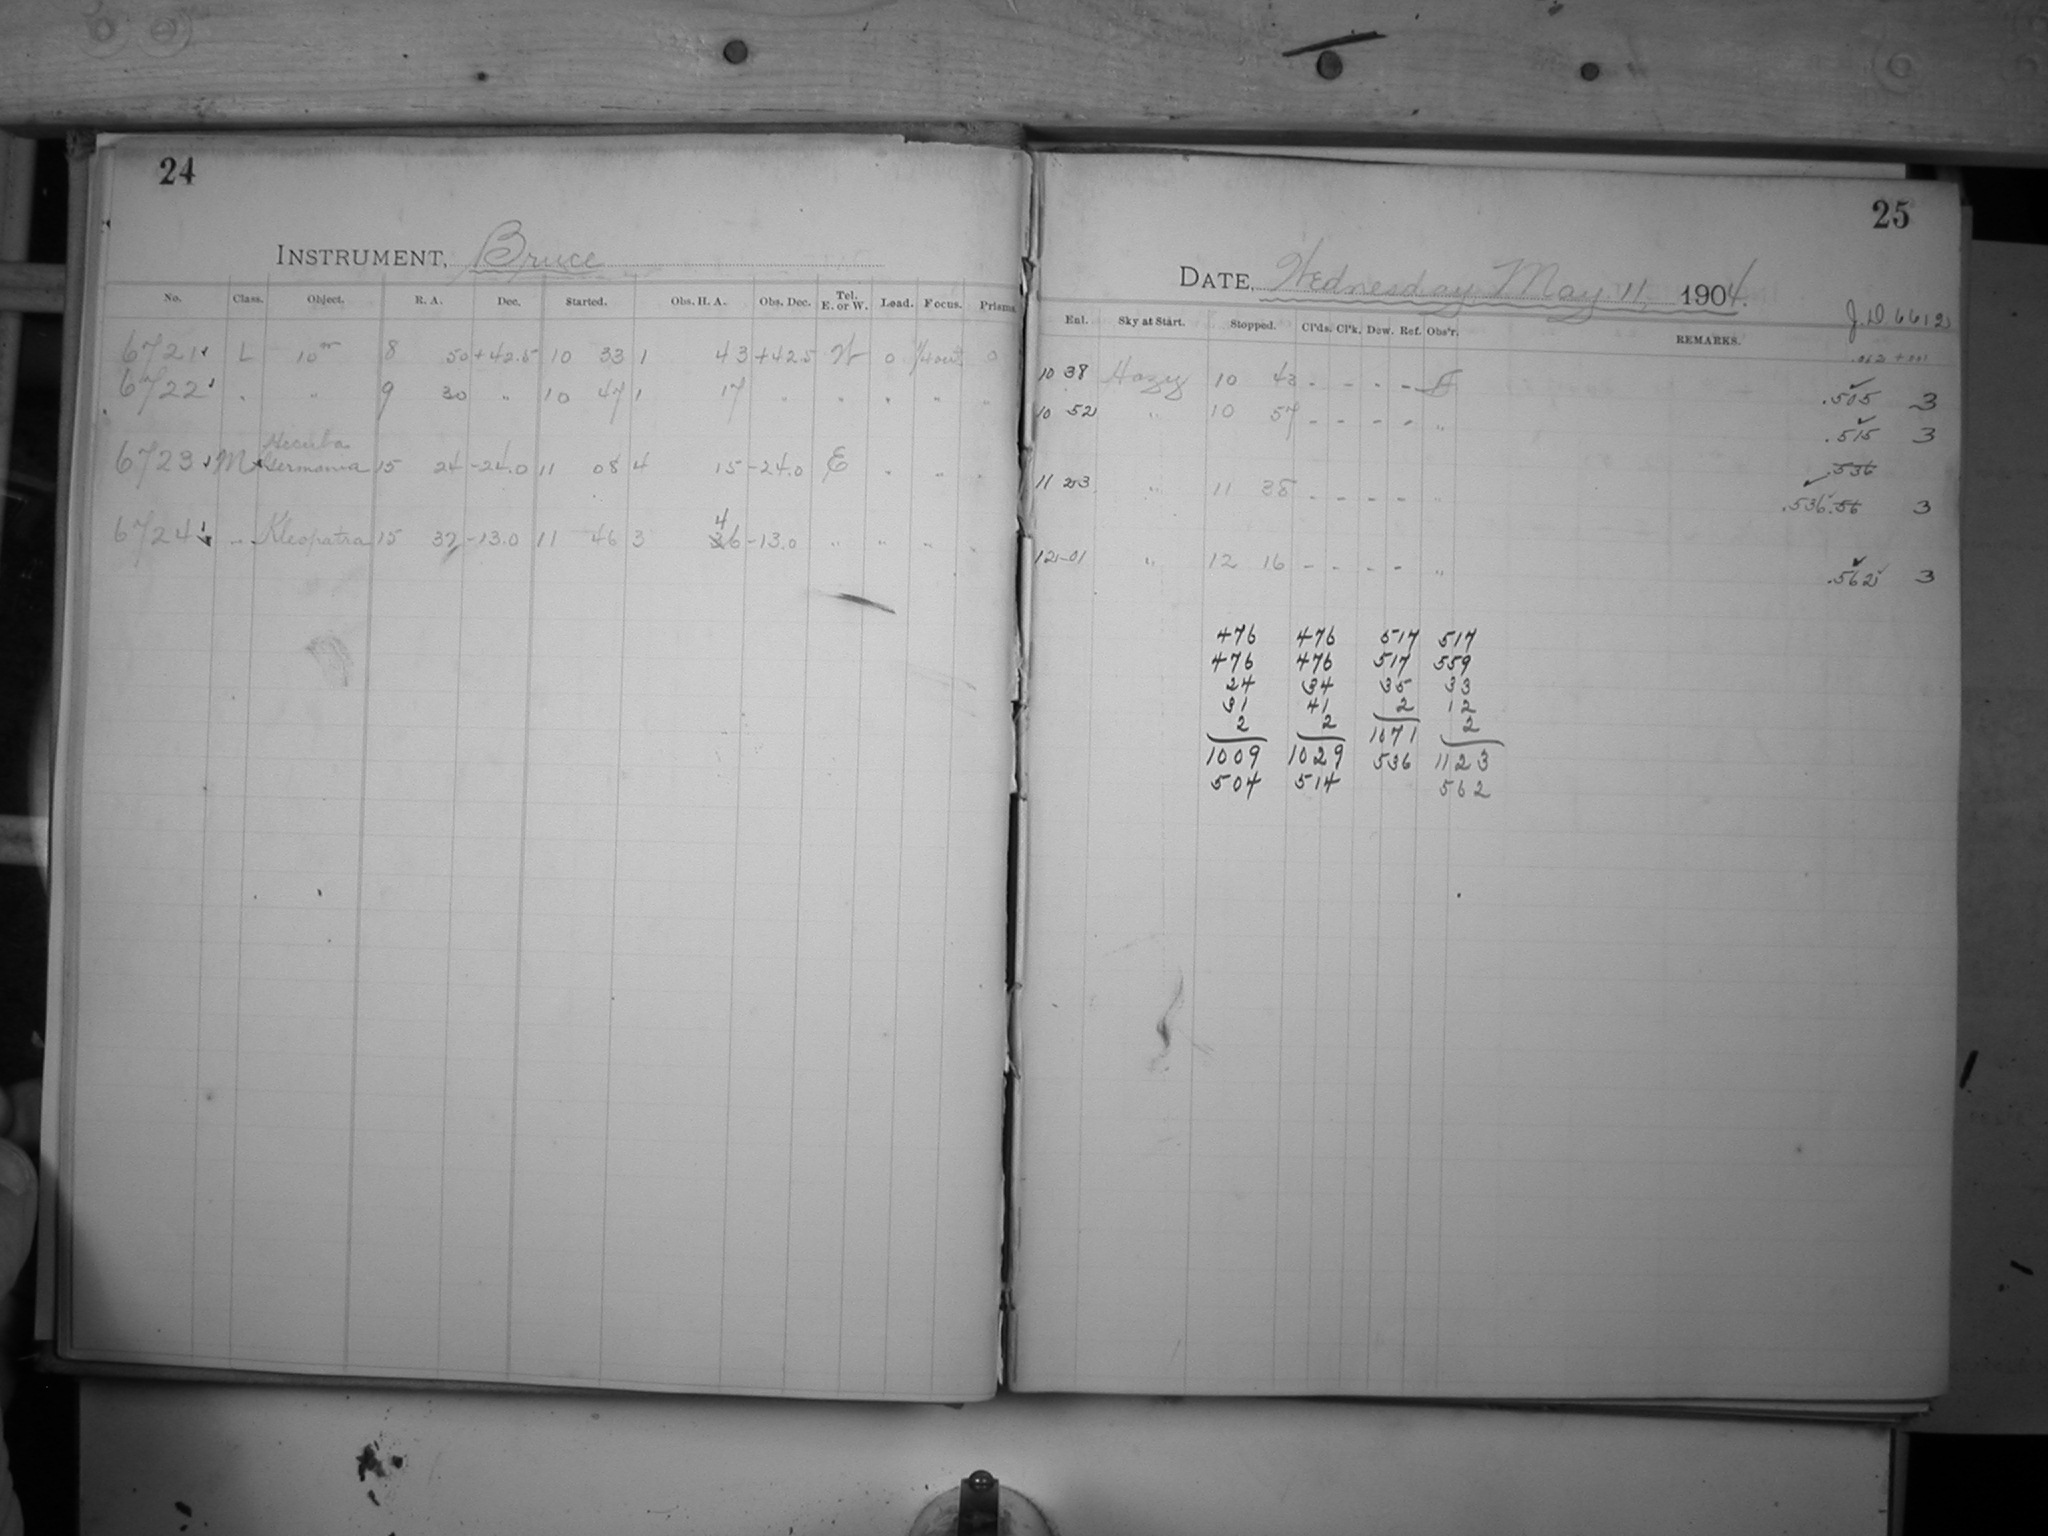 24
INSTRUMENT, Bruce
No. Class. Object. R. A. Dec. Started. Obs. H. A. Obs. Dec. Tel. E. or W. Load. Focus. Prisms.
6721 L 10m 8 50 +42.5 10 33 1 43 +42.5 W 0 1/4 out 0
6722 " " 9 30 " 10 47 1 17 " " " " "
Hecuba
6723 M Germania 15 24 -24.0 11 08 4 15 -24.0 E " " "
4
6724 " Kleopatra 15 32 -13.0 11 46 3 36 -13.0 " " " "
25
DATE, Wednesday May 11, 1904.
J.D 6612
Enl. Sky at Start. Stopped. Cl'ds. Cl'k. Dew. Ref. Obs'r. REMARKS.
.062 + .001
10 38 Hazy 10 43 - - - - .505 3
10 52 " 10 57 - - - - " .515 3
.536
11 23 " 11 38 - - - - " .536 .56 3
12-01 " 12 16 - - - - " .562 3
476 476 517 517
476 476 517 559
24 34 35 33
31 41 2 12
2 2 1071 2
1009 1029 536 1123
504 514 562